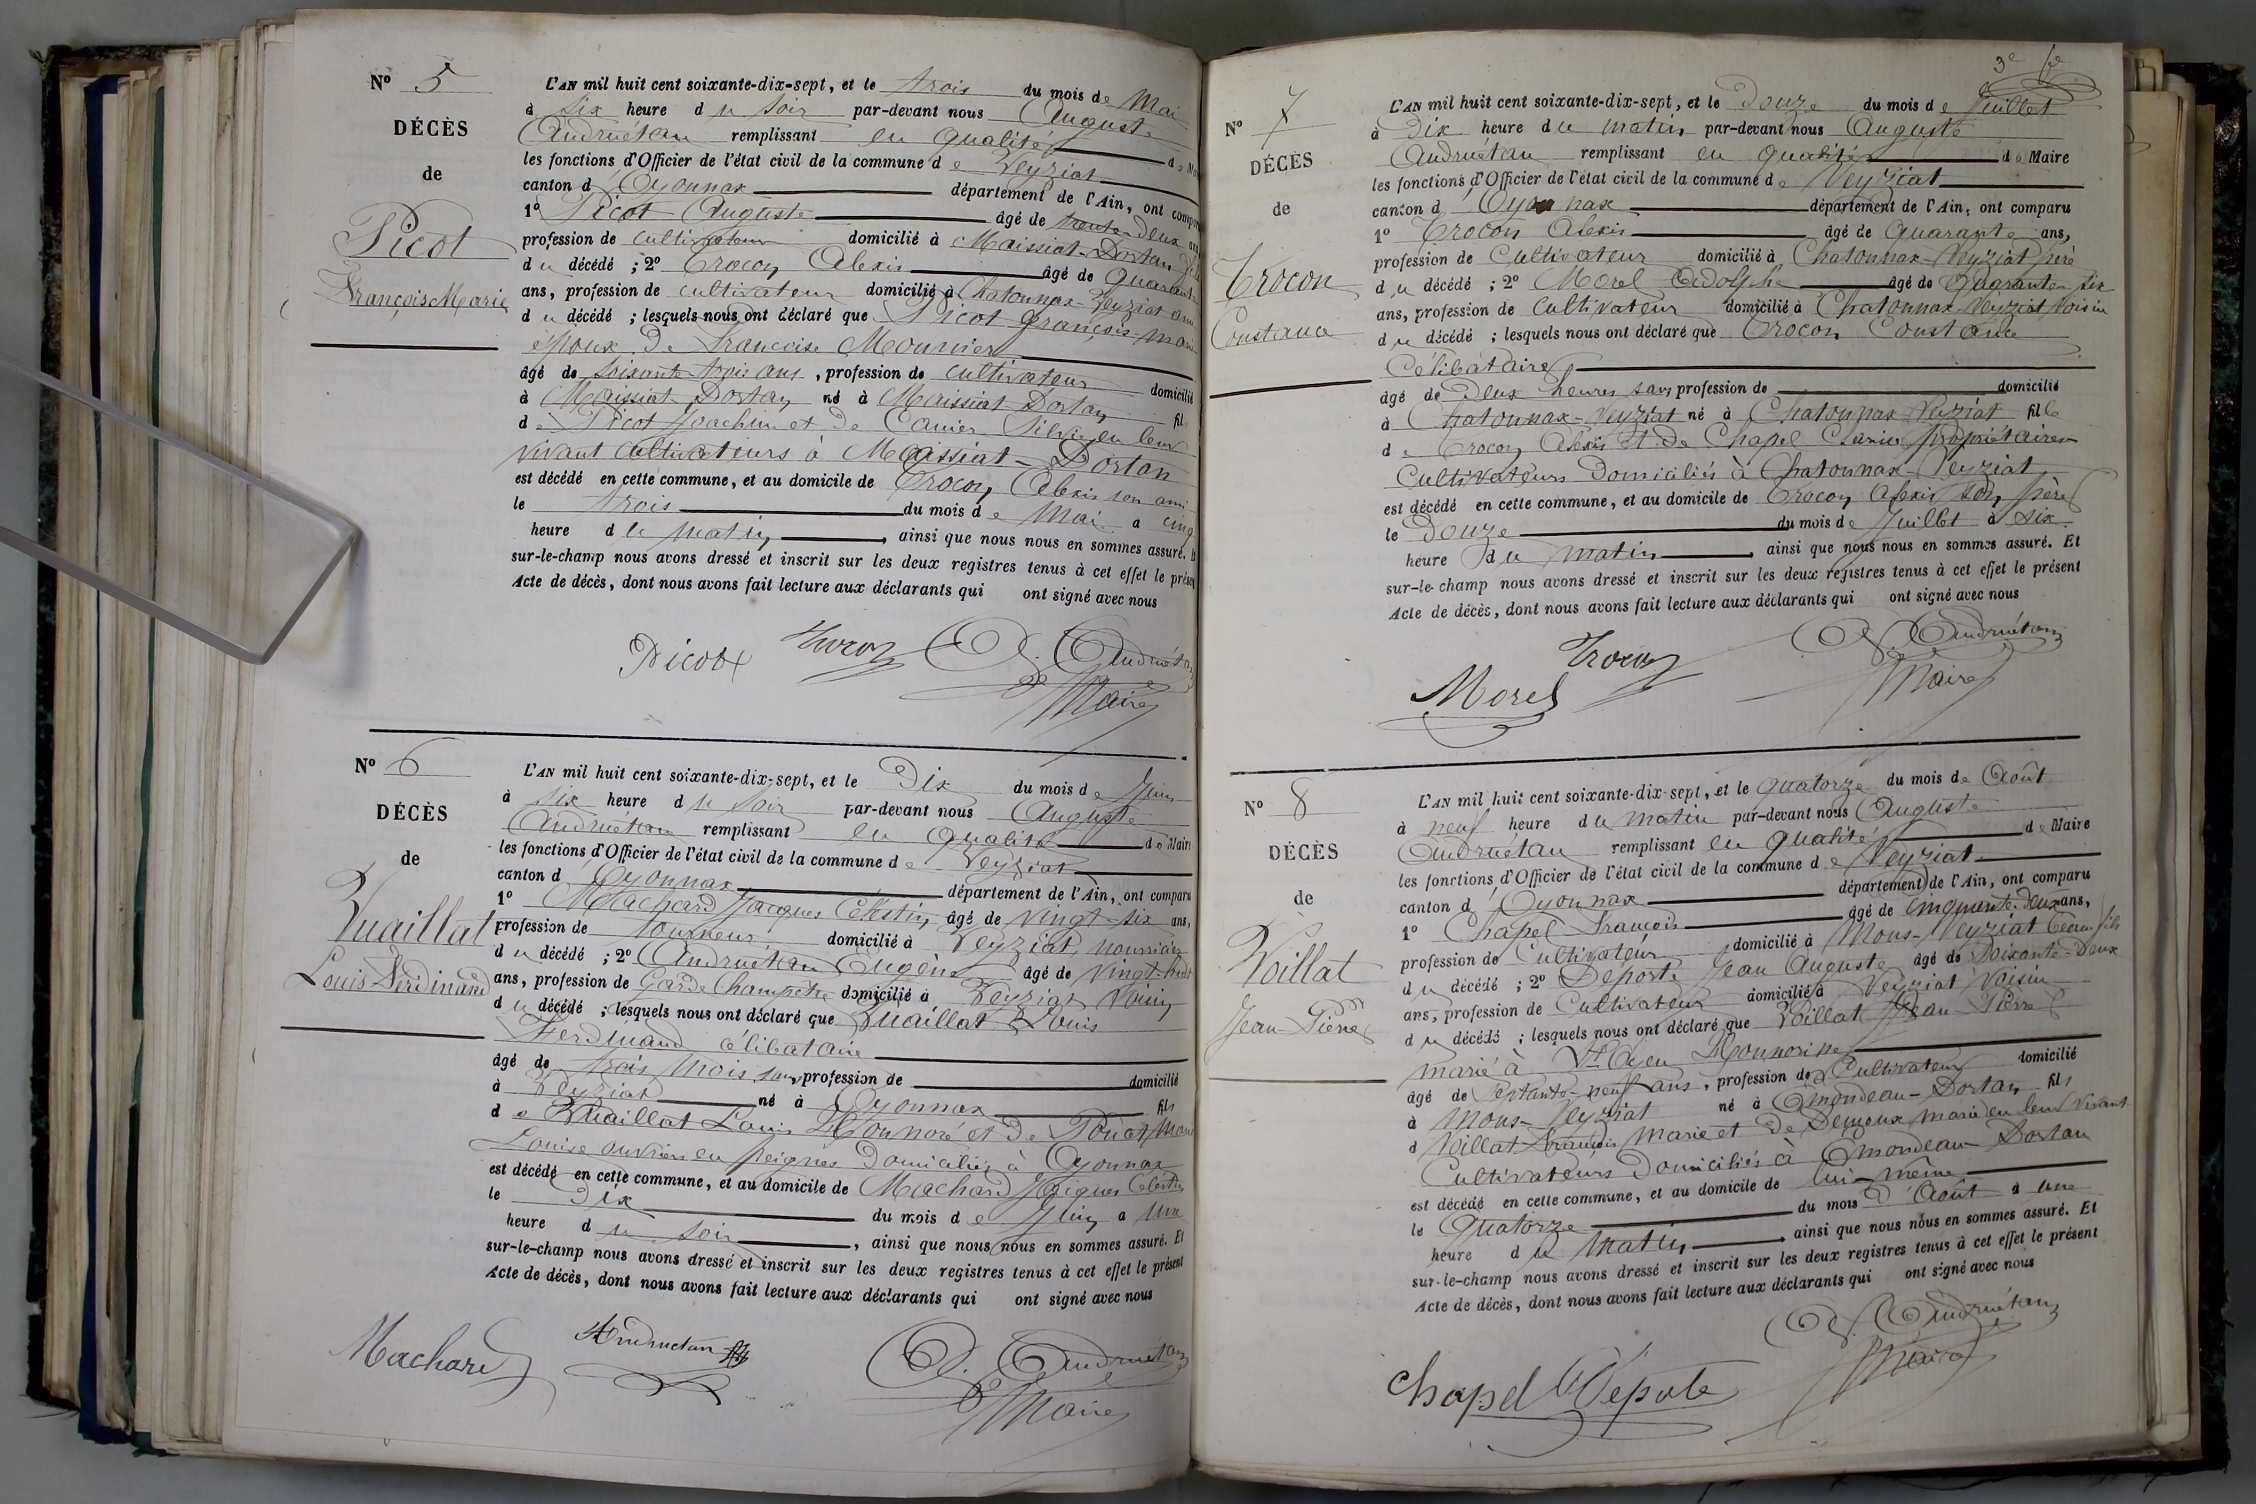 Nº 5
DÉCÈS
de
Picot
François Marie
L'AN mil huit cent soixante-dix-sept, et le trois du mois de Mai
à six heure du soir par-devant nous Auguste
Andruétan remplissant en qualité de
les fonctions d'Officier de l'état civil de la commune de Veyziat
canton d'Oyonnax département de l'Ain, ont compa
1º Picot Auguste âgé de trente deux ans
profession de cultivateur domicilié à Maissiat-Dortan
du décédé ; 2º Crocon Alexis âgé de quarante
ans, profession de cultivateur domicilié à Chatonnax-Veyziat ami
du décédé ; lesquels nous ont déclaré que Picot François-Marie
époux de Françoise Mounier
âgé de soixante trois ans, profession de cultivateur domicilié
à Maissiat-Dortan né à Maissiat Dortan fils
de Picot Joachim et de en leur
vivant cultivateurs à Maissiat-Dortan
est décédé en cette commune, et au domicile de Crocon Alexis son ami
le trois du mois de Mai à cinq
heure du matin, ainsi que nous nous en sommes assuré. Et
sur-le-champ nous avons dressé et inscrit sur les deux registres tenus à cet effet le présent
Acte de décès, dont nous avons fait lecture aux déclarants qui ont signé avec nous
Picot Crocon A. Andruétan
Maire
Nº 6
DÉCÈS
de
Vuaillat
Louis Ferdinand
L'AN mil huit cent soixante-dix-sept, et le Dix du mois de Juin
à six heure du soir par-devant nous Auguste
Andruétan remplissant en qualité de Maire
les fonctions d'Officier de l'état civil de la commune de Veyziat
canton d'Oyonnax département de l'Ain, ont comparu
1º Machard Jacques Célestin, âgé de vingt-six ans,
profession de tourneur domicilié à Veyziat, nourricier
du décédé ; 2º Andruétan Eugène âgé de vingt-huit
ans, profession de Garde Champêtre domicilié à Veyziat Voisin
du décédé ; lesquels nous ont déclaré que Vuaillat Louis
Ferdinand célibataire
âgé de trois mois, sans profession de domicilié
à Veyziat né à Oyonnax fils
de Vuaillat Louis Honnoré et de Ponat Marie
Louise ouvriers en peignes domiciliés à Oyonnax
est décédé en cette commune, et au domicile de Machard Jacques Célestin
le dix du mois de Juin à une
heure du soir, ainsi que nous nous en sommes assuré. Et
sur-le-champ nous avons dressé et inscrit sur les deux registres tenus à cet effet le présent
Acte de décès, dont nous avons fait lecture aux déclarants qui ont signé avec nous
Machard Andruetan A. Andruétan
Maire
3e
Nº 7
DÉCÈS
de
Crocon
Constance
L'AN mil huit cent soixante-dix-sept, et le Douze du mois de Juillet
à Dix heure du matin par-devant nous Auguste
Andruétan remplissant en qualité de Maire
les fonctions d'Officier de l'état civil de la commune de Veyziat
canton d'Oyonnax département de l'Ain, ont comparu
1º Crocon Alexis âgé de quarante ans,
profession de Cultivateur domicilié à Chatonnax-Veyziat père
du décédé ; 2º Morel Adolphe âgé de Quarante six
ans, profession de Cultivateur domicilié à Chatonnax-Veyziat, Voisin
du décédé ; lesquels nous ont déclaré que Crocon Constance
Célibataire
âgé de deux heures sans profession de domicilié
à Chatonnax-Veyziat né à Chatonnax Veyziat fille
de Crocon Alexis et de Chapel propriétaires
Cultivateurs domiciliés à Chatonnax-Veyziat
est décédé en cette commune, et au domicile de Crocon Alexis son père
le Douze du mois de Juillet à six
heure du matin, ainsi que nous nous en sommes assuré. Et
sur-le-champ nous avons dressé et inscrit sur les deux registres tenus à cet effet le présent
Acte de décès, dont nous avons fait lecture aux déclarants qui ont signé avec nous
Morel Crocon A. Andruétan
Maire
Nº 8
DÉCÈS
de
Voillat
Jean-Pierre
L'AN mil huit cent soixante-dix-sept, et le quatorze du mois de Août
à neuf heure du matin par-devant nous Auguste
Andruétan remplissant en qualité de Maire
les fonctions d'Officier de l'état civil de la commune de Veyziat
canton d'Oyonnax département de l'Ain, ont comparu
1º Chapel François âgé de cinquante-deux ans,
profession de Cultivateur domicilié à Mons-Veyziat beau fils
du décédé ; 2º Deporte Jean Auguste âgé de Soixante-Deux
ans, profession de Cultivateur domicilié à Veyziat Voisin
du décédé ; lesquels nous ont déclaré que Voillat Jean Pierre
marié à Honnorine
âgé de septante-neuf ans, profession de Cultivateur domicilié
à Mons-Veyziat né à Emondeau-Dortan fils
d Voillat François Marie et de Demoux Marie en leur Vivant
Cultivateurs domiciliés à Emondeau-Dortan
est décédé en cette commune, et au domicile de lui-même
le Quatorze du mois d'Août à une
heure du matin, ainsi que nous nous en sommes assuré. Et
sur-le-champ nous avons dressé et inscrit sur les deux registres tenus à cet effet le présent
Acte de décès, dont nous avons fait lecture aux déclarants qui ont signé avec nous
Chapel Déporte A. Andruétan
Maire